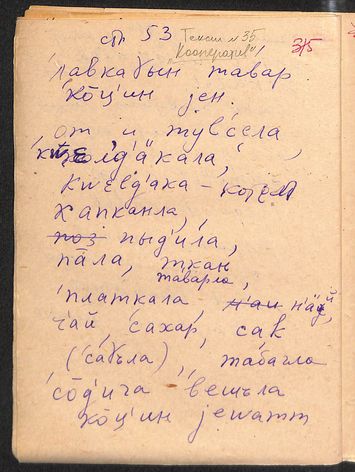 стр 53 Тексти № 35
"Кооператив" 35
лавкаɣын тавар
қо̄ц'ин јен.
от и тувсела,
қолд'акала,
квелд'ака – котел
капканла,
поз пыд'ила,
па̄ла, ткан
таварла,
платкала, н'аи н'ӓй,
чай, сахар, сак
(саɣъла), табагла
со̄дига вешьла
қо̄ц'ин јеватт